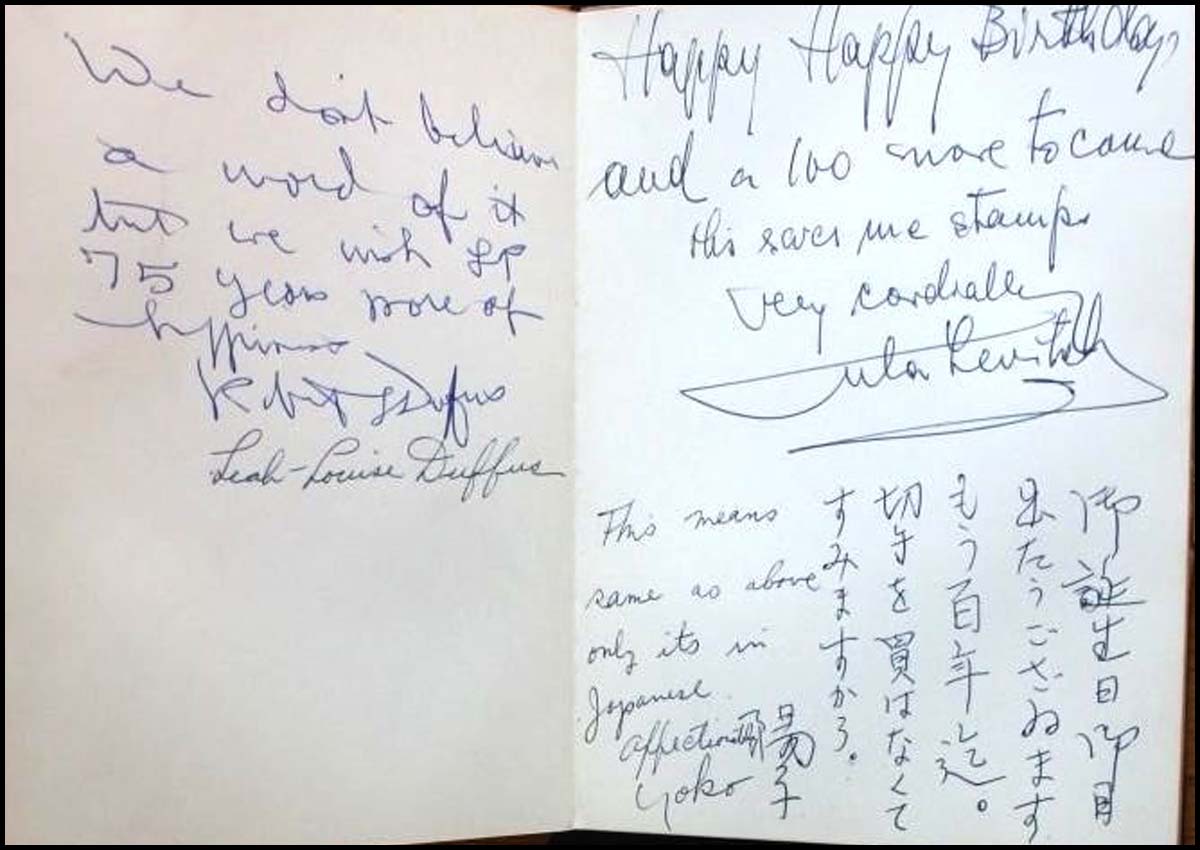 We don't believe
a word of it
but we wish
75 years more of
happiness
Robert L Duffus
Leah-Louise Duffus
Happy Happy Birthday
and a 100 more to come
this saves me stamps
very cordially
Mela Levitch
御誕生日御目
出たうござゐます
もう百年迄。
切手を買はなくて
すみますから。
This means
same as above
only its in
Japanese.
affectionately
Yoko 陽子